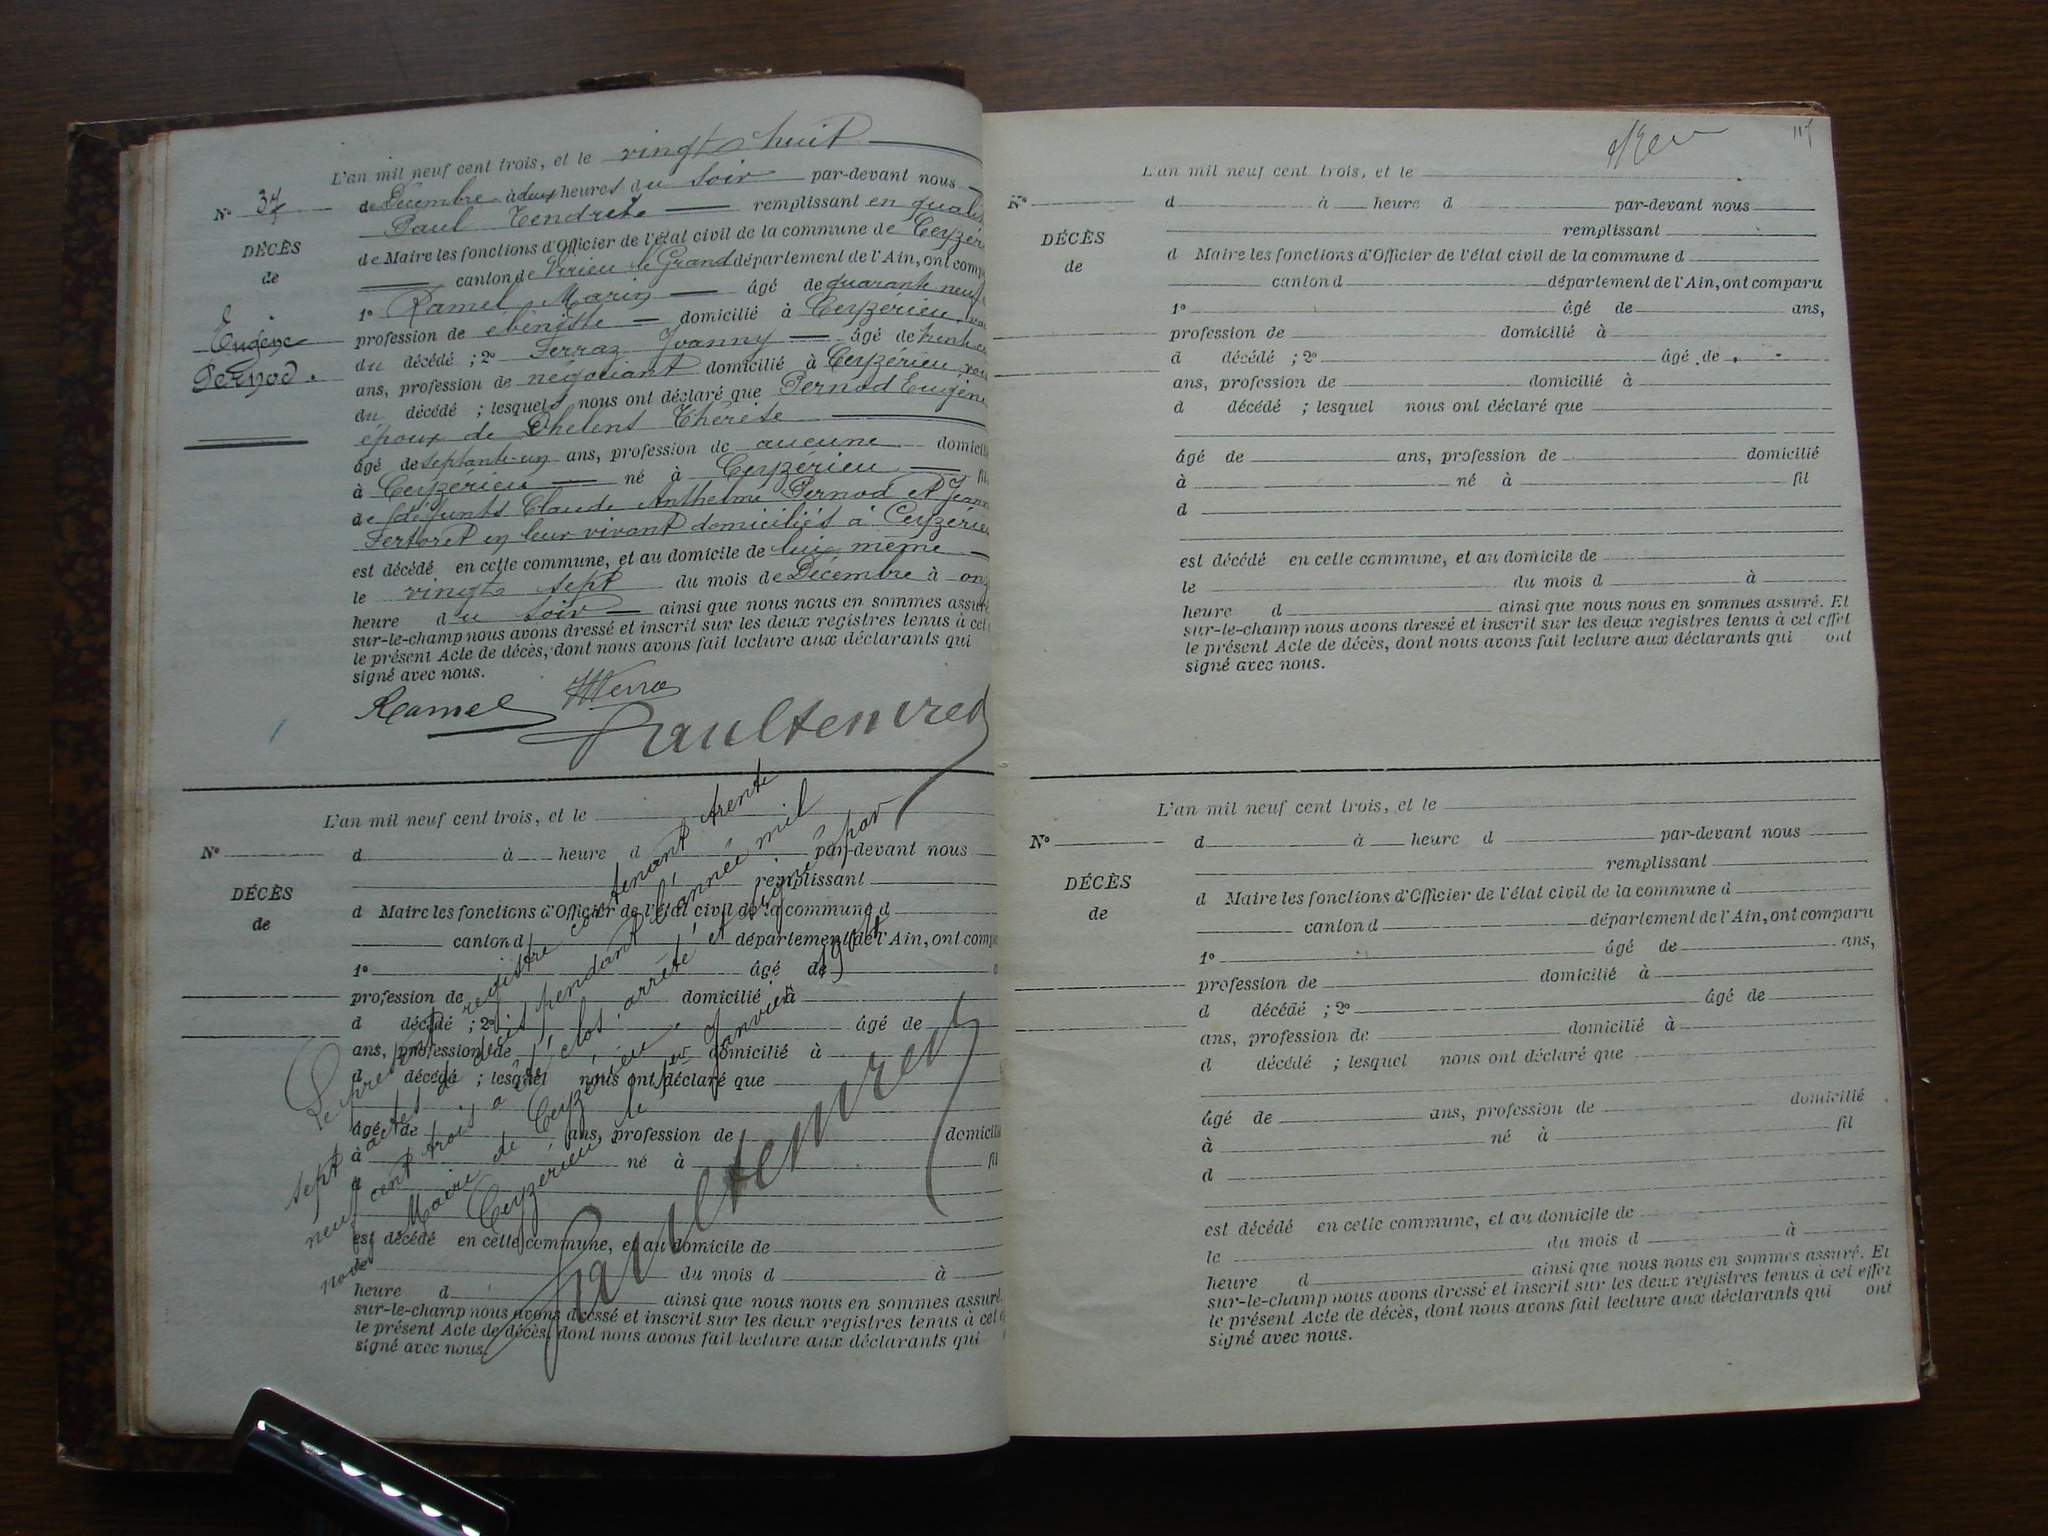 L'an mil neuf cent trois, et le vingt huit
N° 37
de Décembre à deux heures du soir par-devant nous
Paul Tendret remplissant en qualité
DÉCÈS
de Maire les fonctions d'Officier de l'état civil de la commune de Ceyzérieu
de
canton de Virieu le Grand département de l'Ain, ont comparu
1° Ramel Marin âgé de quarante neuf
Eugène
profession de ébéniste domicilié à Ceyzérieu,
du décédé ; 2° Ferraz Joanny âgé de trente
Pernod.
ans, profession de négociant domicilié à Ceyzérieu
du décédé ; lesquels nous ont déclaré que Pernod Eugène
époux de Phelens Thérèse
âgé de septante-un ans, profession de aucune domicilié
à Ceyzérieu né à Ceyzérieu fil
de défunts Claude Anthelme Pernod et Jeanne
Fertoret en leur vivant domiciliés à Ceyzérieu
est décédé en cette commune, et au domicile de lui même
le vingt sept du mois de Décembre à onze
heure du soir ainsi que nous nous en sommes assuré
sur-le-champ nous avons dressé et inscrit sur les deux registres tenus à cet
le présent Acte de décès, dont nous avons fait lecture aux déclarants qui
signé avec nous.
Ramel
Paul Tendret
L'an mil neuf cent trois, et le
N°
d à heure d par-devant nous
remplissant
DÉCÈS
d Maire les fonctions d'Officier de l'état civil de la commune d
de
canton d département de l'Ain, ont compa
1° âgé de
profession de domicilié à
d décédé ; 2° âgé de
ans, profession de domicilié à
d décédé ; lesquel nous ont déclaré que
âgé de ans, profession de domicilié
à né à fil
d
est décédé en cette commune, et au domicile de
le du mois d à
heure d ainsi que nous nous en sommes assuré.
sur-le-champ nous avons dressé et inscrit sur les deux registres tenus à cet
le présent Acte de décès, dont nous avons fait lecture aux déclarants qui
signé avec nous.
Le présent registre contenant trente
sept actes de décès pendant l'année mil
neuf cent trois a été clos arrêté et signé par
nous Maire de Ceyzérieu.
Ceyzérieu le 1er Janvier 1904
Paul Tendret
117
L'an mil neuf cent trois, et le
N°
d à heure d par-devant nous
remplissant
DÉCÈS
d Maire les fonctions d'Officier de l'état civil de la commune d
de
canton d département de l'Ain, ont comparu
1° âgé de ans,
profession de domicilié à
d décédé ; 2° âgé de
ans, profession de domicilié à
d décédé ; lesquel nous ont déclaré que
âgé de ans, profession de domicilié
à né à fil
d
est décédé en cette commune, et au domicile de
le du mois d à
heure d ainsi que nous nous en sommes assuré. Et
sur-le-champ nous avons dressé et inscrit sur les deux registres tenus à cet effet
le présent Acte de décès, dont nous avons fait lecture aux déclarants qui ont
signé avec nous.
L'an mil neuf cent trois, et le
N°
d à heure d par-devant nous
remplissant
DÉCÈS
d Maire les fonctions d'Officier de l'état civil de la commune d
de
canton d département de l'Ain, ont comparu
1° âgé de ans,
profession de domicilié à
d décédé ; 2° âgé de
ans, profession de domicilié à
d décédé ; lesquel nous ont déclaré que
âgé de ans, profession de domicilié
à né à fil
d
est décédé en cette commune, et au domicile de
le du mois d à
heure d ainsi que nous nous en sommes assuré. Et
sur-le-champ nous avons dressé et inscrit sur les deux registres tenus à cet effet
le présent Acte de décès, dont nous avons fait lecture aux déclarants qui ont
signé avec nous.